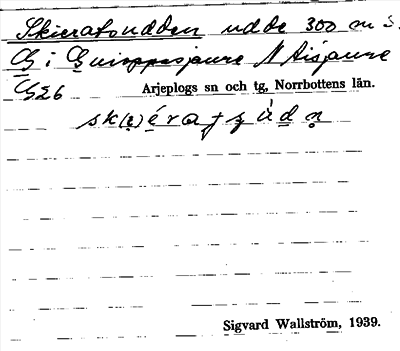 Skieratsudden udde 300 m s.
G i Guioppesjaure N Aisjaure
G26
Arjeplogs sn och tg, Norrbottens län.
Sigvard Wallström, 1939.